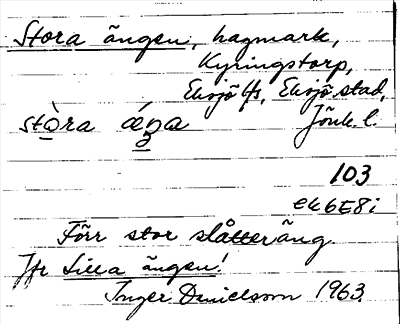 Stora ängen, hagmark,
Kyringstorp,
Eksjö lfs, Eksjö stad,
stòra ǽŋa Jönk. l.
103
ek6E8i
Förr stor slåtteräng.
Jfr Lilla ängen!
Inger Danielsson 1963.